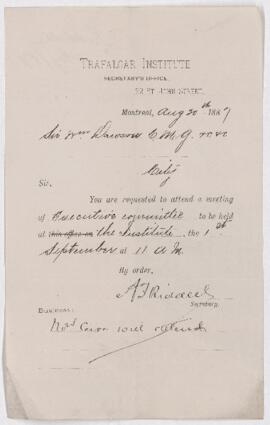 TRAFALGAR INSTITUTE
SECRETARY'S OFFICE,
22 ST. JOHN STREET,
Montreal, Aug 30th 1887
Sir Wm Dawson C.M.G. &c &c
City
Sir,
You are requested to attend a meeting
of Executive Committee to be held
at this office on the Institute, the 1st
September at 11 A.M.
By order,
A F Riddell
Secretary.
BUSINESS: